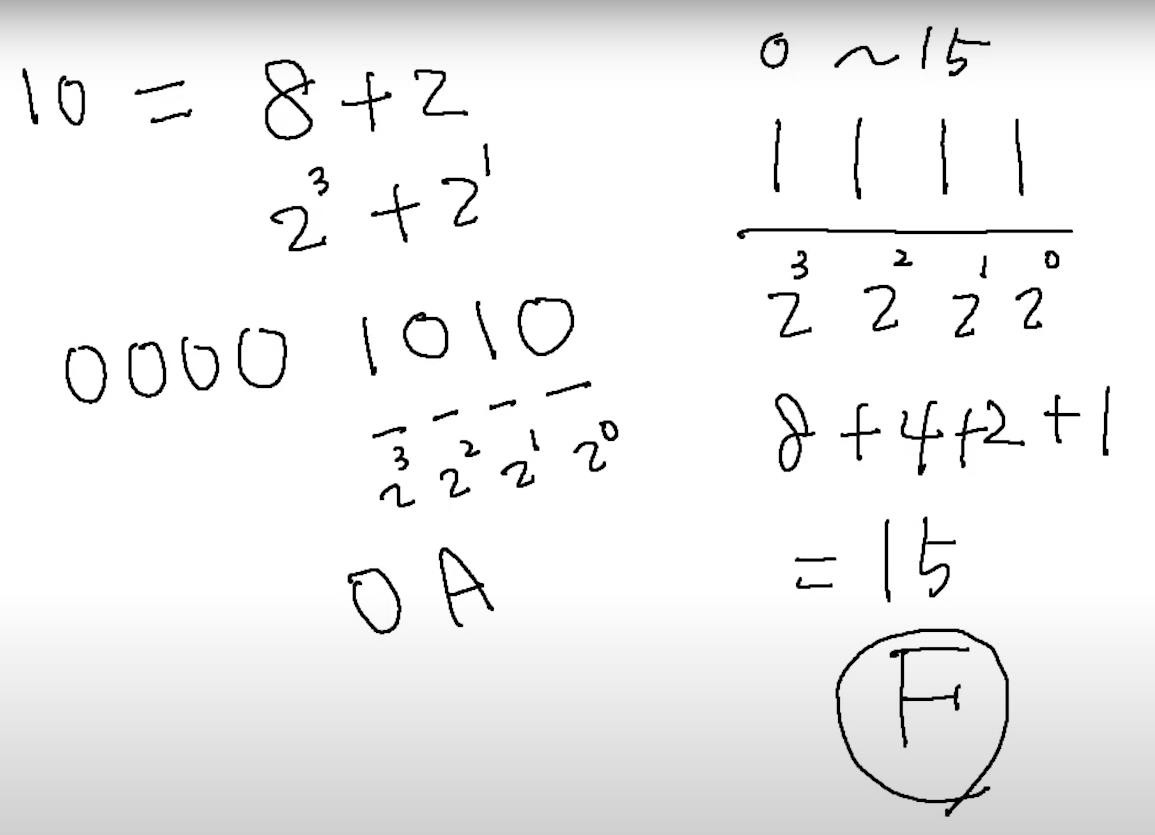 10 = 8 + 2
2³ + 2¹
0000 1010
2³ 2² 2¹ 2⁰
0A
0 ~ 15
1 1 1 1
2³ 2² 2¹ 2⁰
8 + 4 + 2 + 1
= 15
F